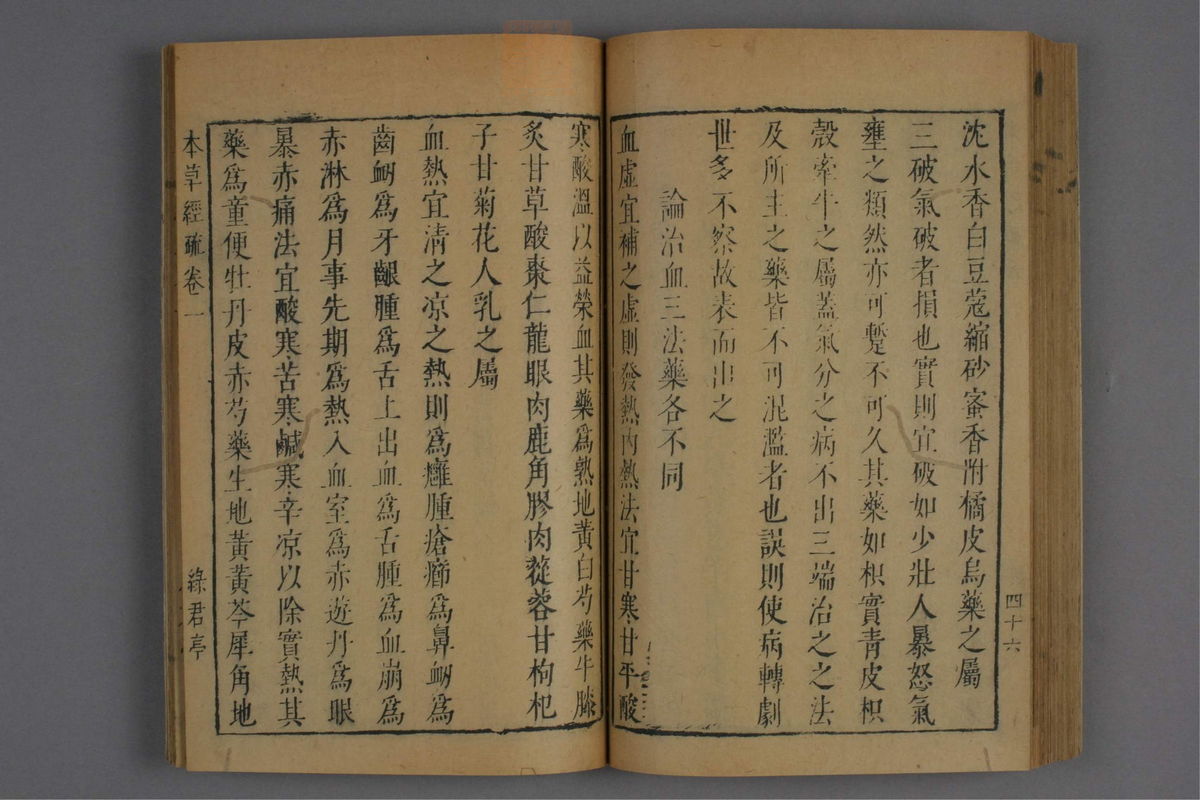 沈水香白豆蔻縮砂蜜香附橘皮烏藥之屬
三破氣破者損也實則宜破如少壯人暴怒氣
壅之類然亦可蹔不可久其藥如枳實青皮枳
殼牽牛之屬蓋氣分之病不出三端治之之法
及所主之藥皆不可混濫者也誤則使病轉劇
世多不察故表而出之
論治血三法藥各不同
血虛宜補之虛則發熱內熱法宜甘寒甘平酸
四十六
寒酸溫以益榮血其藥爲熟地黃白芍藥牛膝
炙甘草酸棗仁龍眼肉鹿角膠肉蓯蓉甘枸杞
子甘菊花人乳之屬
血熱宜清之凉之熱則爲癰腫瘡癤爲鼻衄爲
齒衄爲牙齦腫爲舌上出血爲舌腫爲血崩爲
赤淋爲月事先期爲熱入血室爲赤遊丹爲眼
暴赤痛法宜酸寒苦寒鹹寒辛凉以除實熱其
藥爲童便牡丹皮赤芍藥生地黃黃芩犀角地
本草經疏卷一
綠君亭